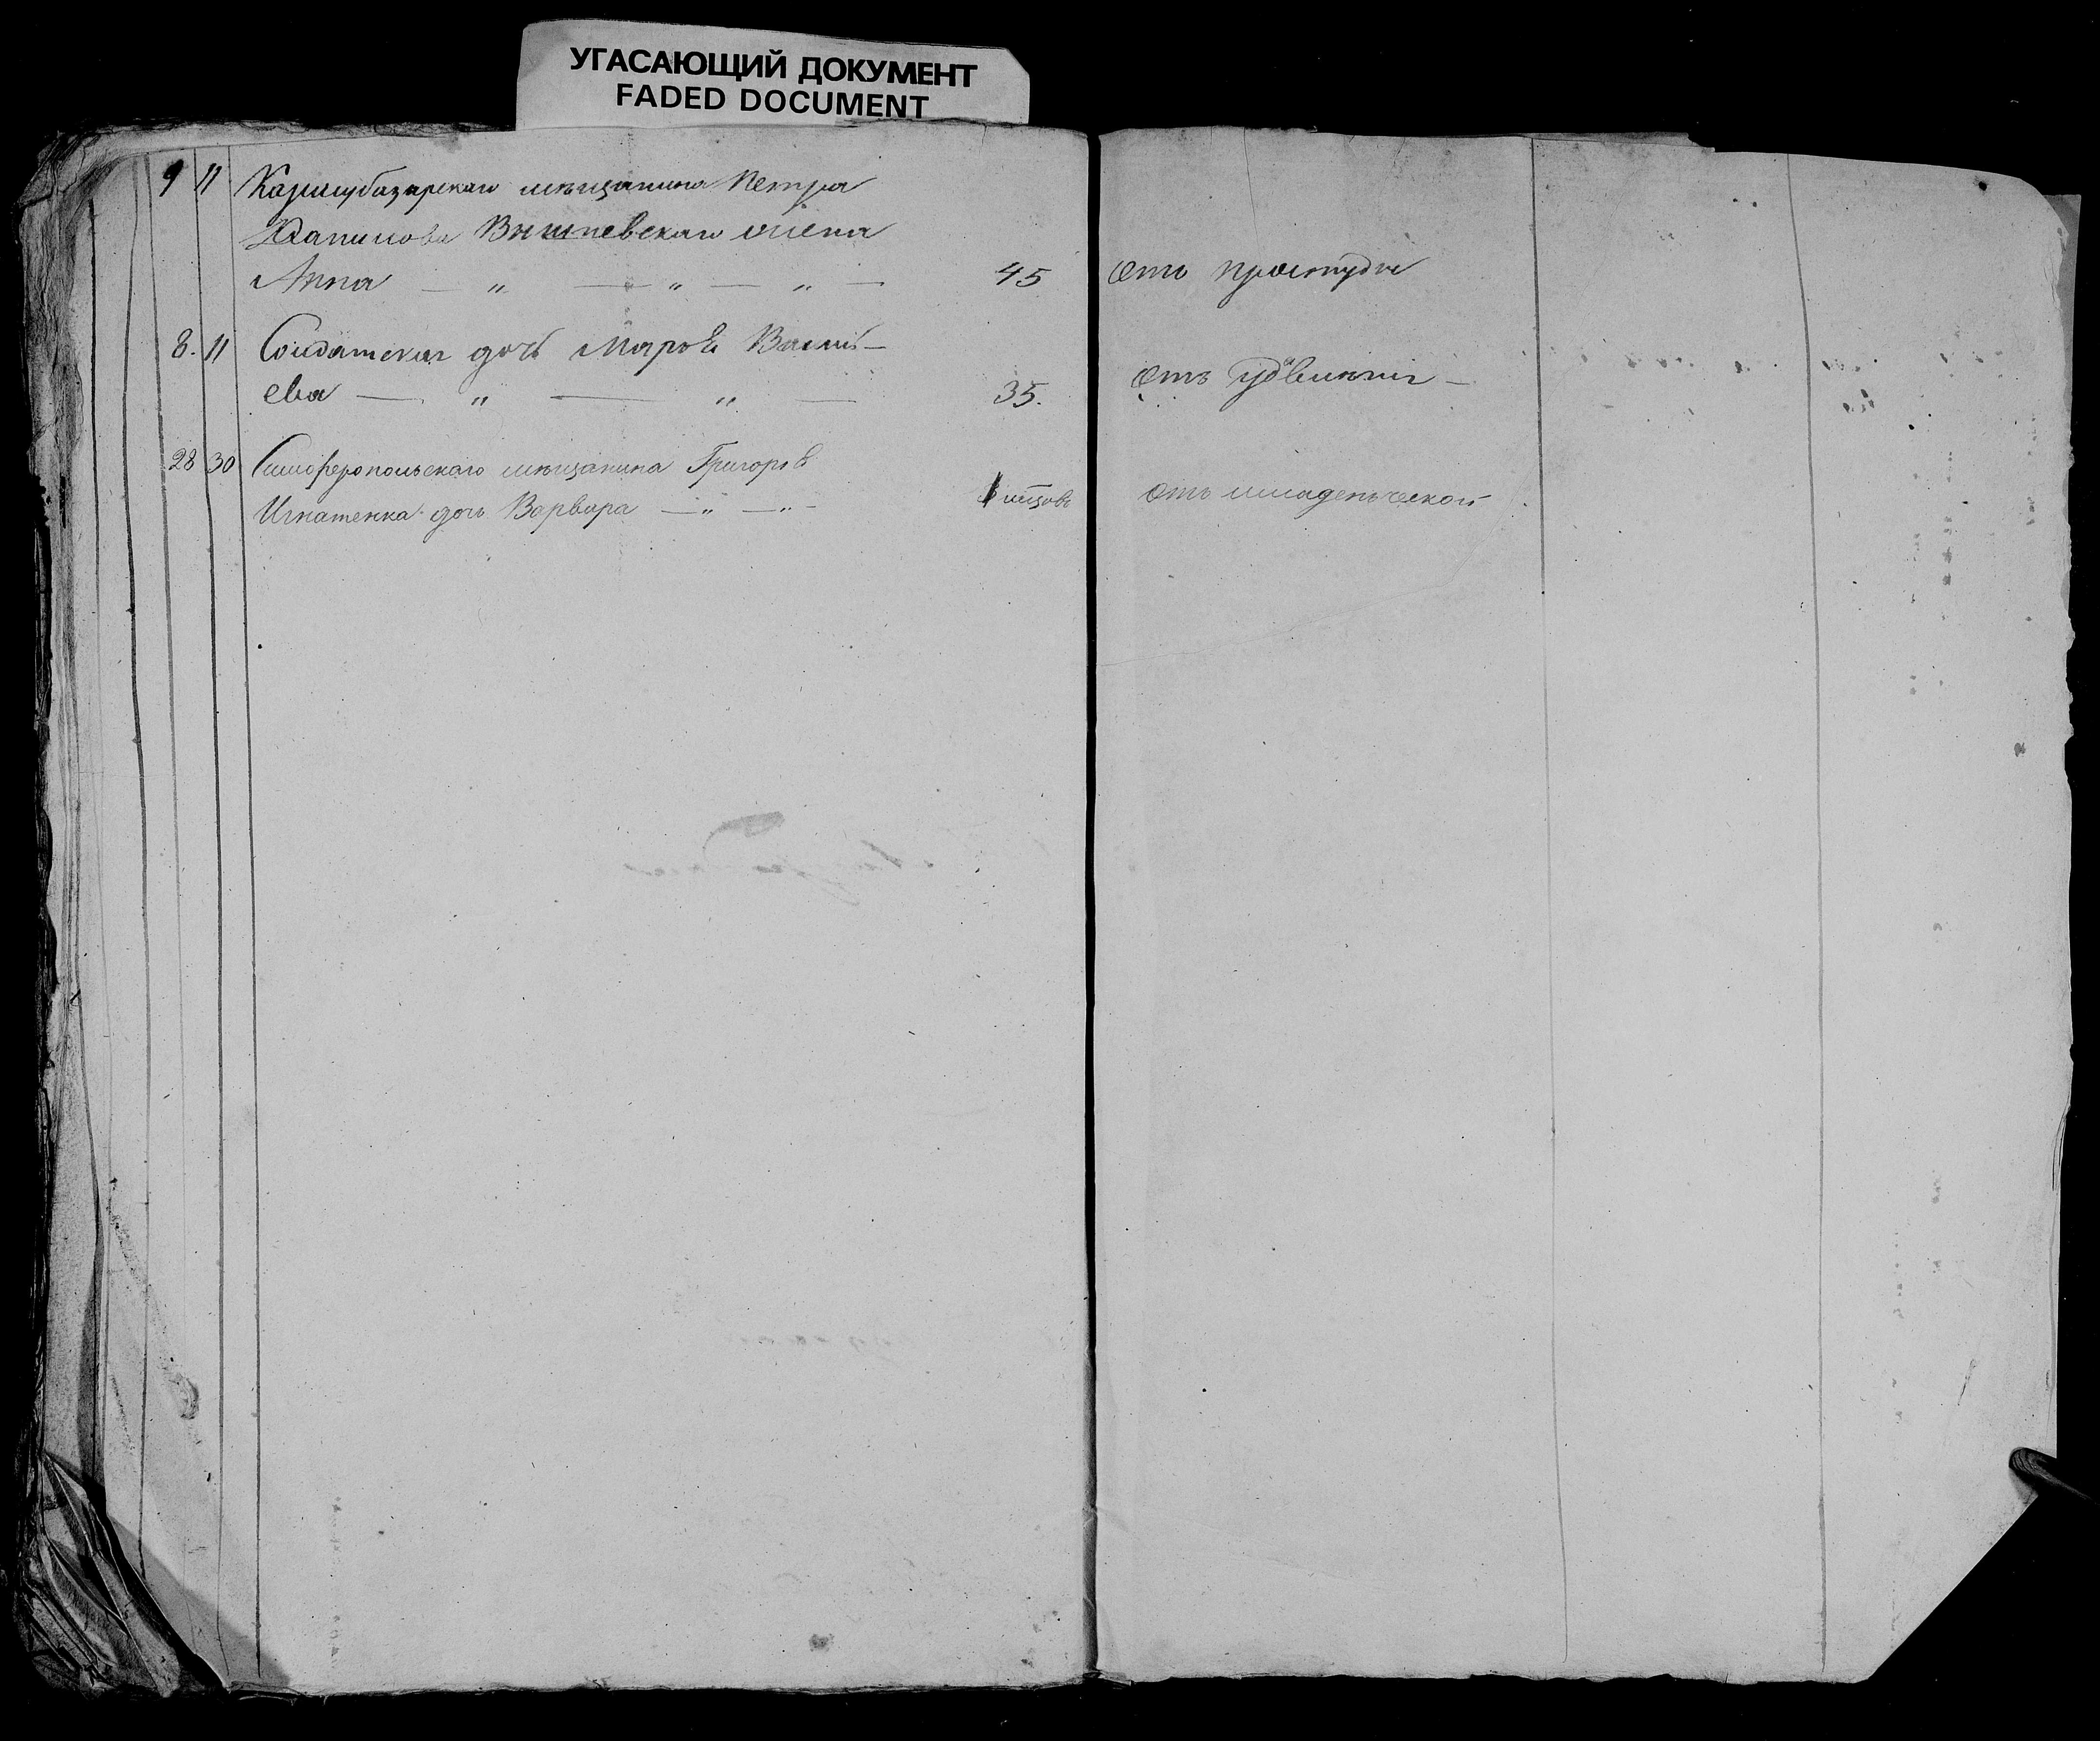 УГАСАЮЩИЙ ДОКУМЕНТ
FADED DOCUMENT
9 11 Карасубазарскаго мѣщанина Петра
Данилова Вишневскаго жена
Анна — „ — „ — „ — 45 Отъ простуды
8. 11 Солдатская дочь Василь—
ева — „ — „ — 35. Отъ
28 30 Симферопольскаго мѣщанина Григорія
Игнатенка дочь Варвара — „ — „ - Отъ младенческой